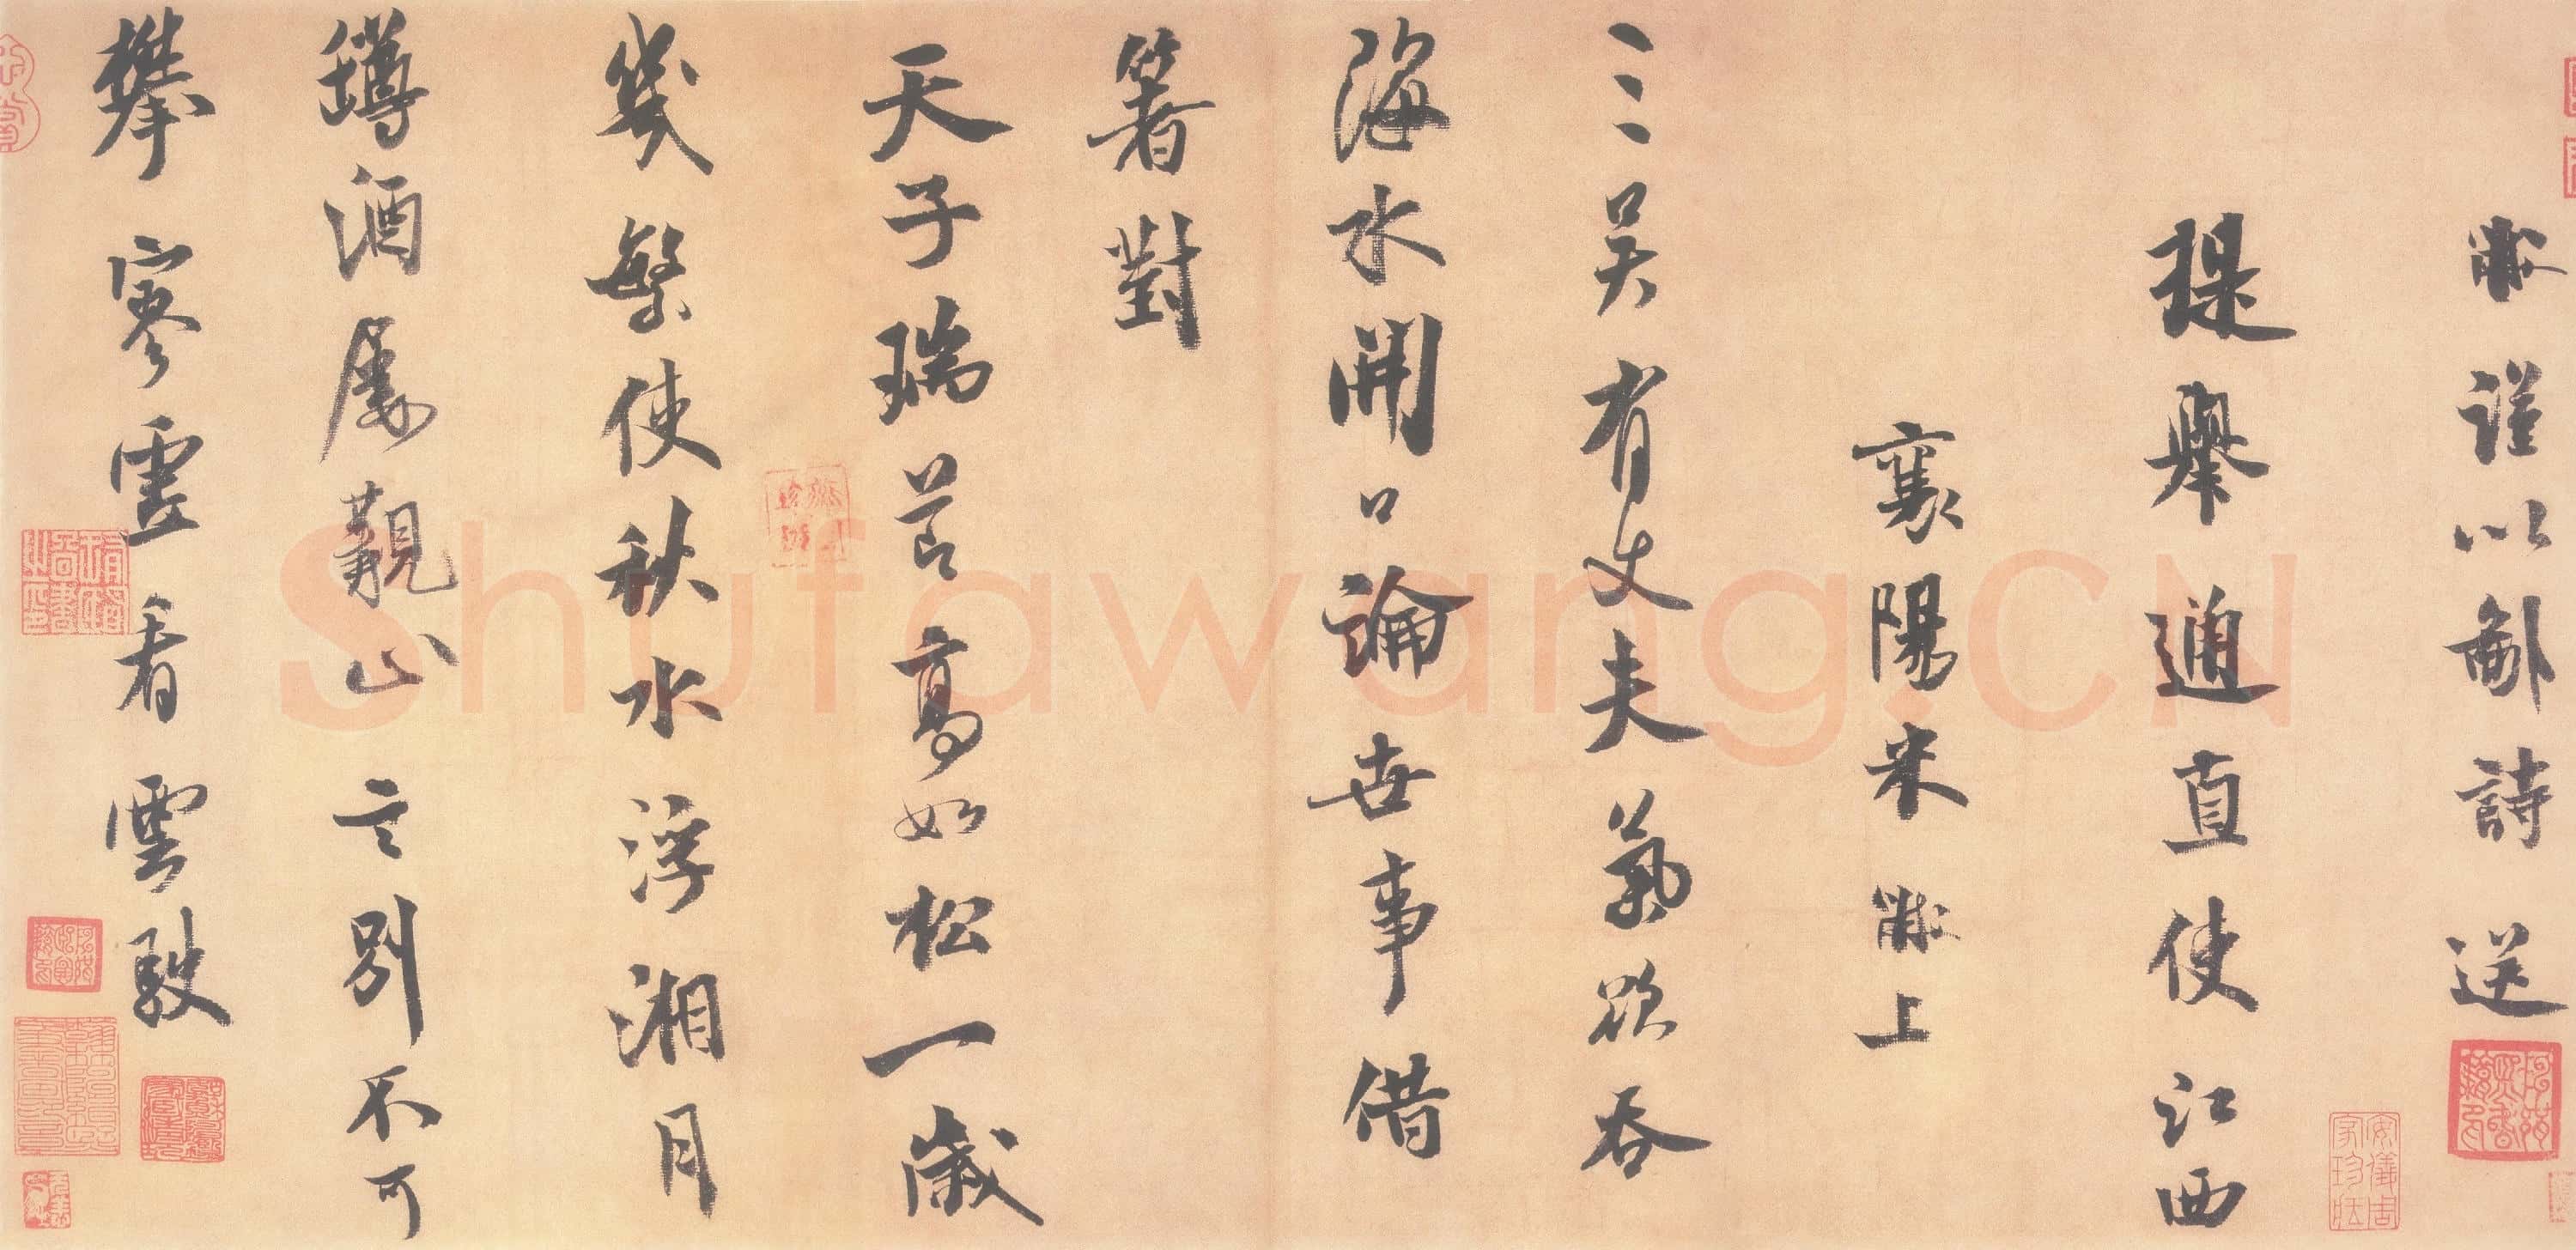 黻謹以鄙詩送
提舉通直使江西
襄陽米黻上
三吳有丈夫氣欲吞
海水開口論世事借
箸對
天子瑞節高如松一歲
幾繁使秋水浮湘月
罇酒屢覯止言別不可
攀寥靈看雲駛
Shufawang.CN